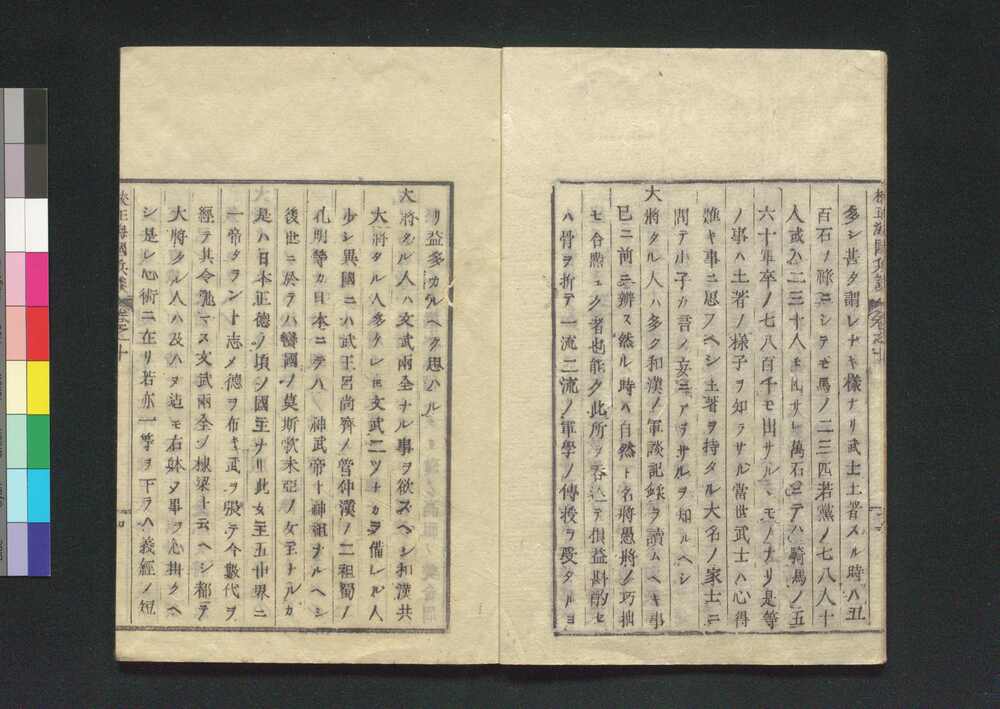 多シ甚タ謂レナキ様ナリ武士土著スル時ハ五
百石ノ祿ニシテモ馬ノ二三匹若黨ノ七八人十
人或ハ二三十人モ出サレ萬石ニテハ騎馬ノ五
六十軍卒ノ七八百千モ出サルヽモノナリ是等
ノ事ハ土著ノ様子ヲ知ラサル當世武士ハ心得
難キ事ニ思フヘシ土著ヲ持タル大名ノ家士ニ
問テ小子カ言ノ妄ニアラサルヲ知ルヘシ
大將タル人ハ多ク和漢ノ軍談記録ヲ讀ムヘキ事
已ニ前ニ辨ス然ル時ハ自然ト名將愚將ノ巧拙
モ合點ユク者也能ク此所ヲ呑込テ損益斟酌セ
ハ骨ヲ折テ一流二流ノ軍學ノ傳授ヲ受タルヨ
リ益多カルヘク思ハル
大將タル人ハ文武兩全ナル事ヲ欲スヘシ和漢共
大將タル人多クレ𪜈文武二ツナカラ備レル人
少シ異國ニハ武王呂尚齊ノ管仲漢ノ二祖蜀ノ
孔明等カ日本ニテハ 神武帝ト神祖ナルヘシ
後世ニ於テハ

國ノ莫斯歌未亞ノ女主ナルカ
是ハ日本正德ノ頃ノ國主ナリ此女主五世界ニ
一帝タラント志メ德ヲ布キ武ヲ張テ今數代ヲ
經テ其令弛マス文武兩全ノ棟梁ト云ヘシ都テ
大將タル人ハ及ハヌ迄モ右躰ヲ心掛クヘ
シ是レ心術ニ在リ若亦一等ヲ下ラハ義經ノ短